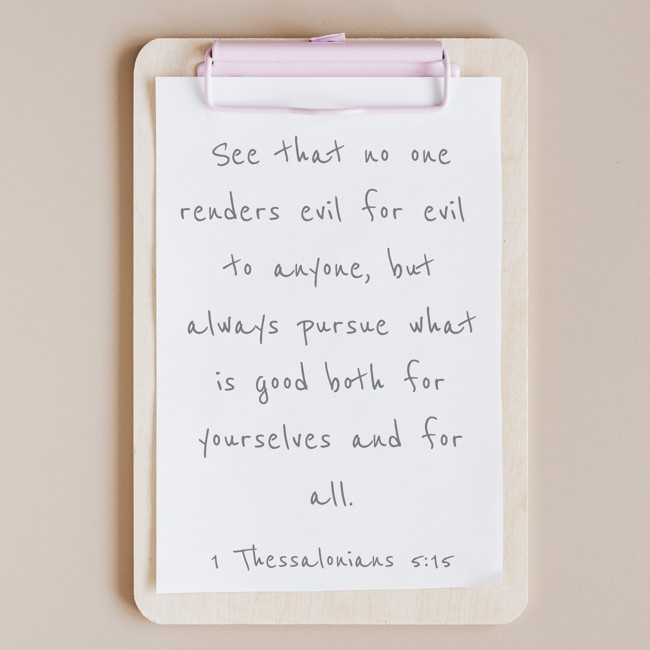 See that no one
renders evil for evil
to anyone, but
always pursue what
is good both for
yourselves and for
all.
1 Thessalonians 5:15